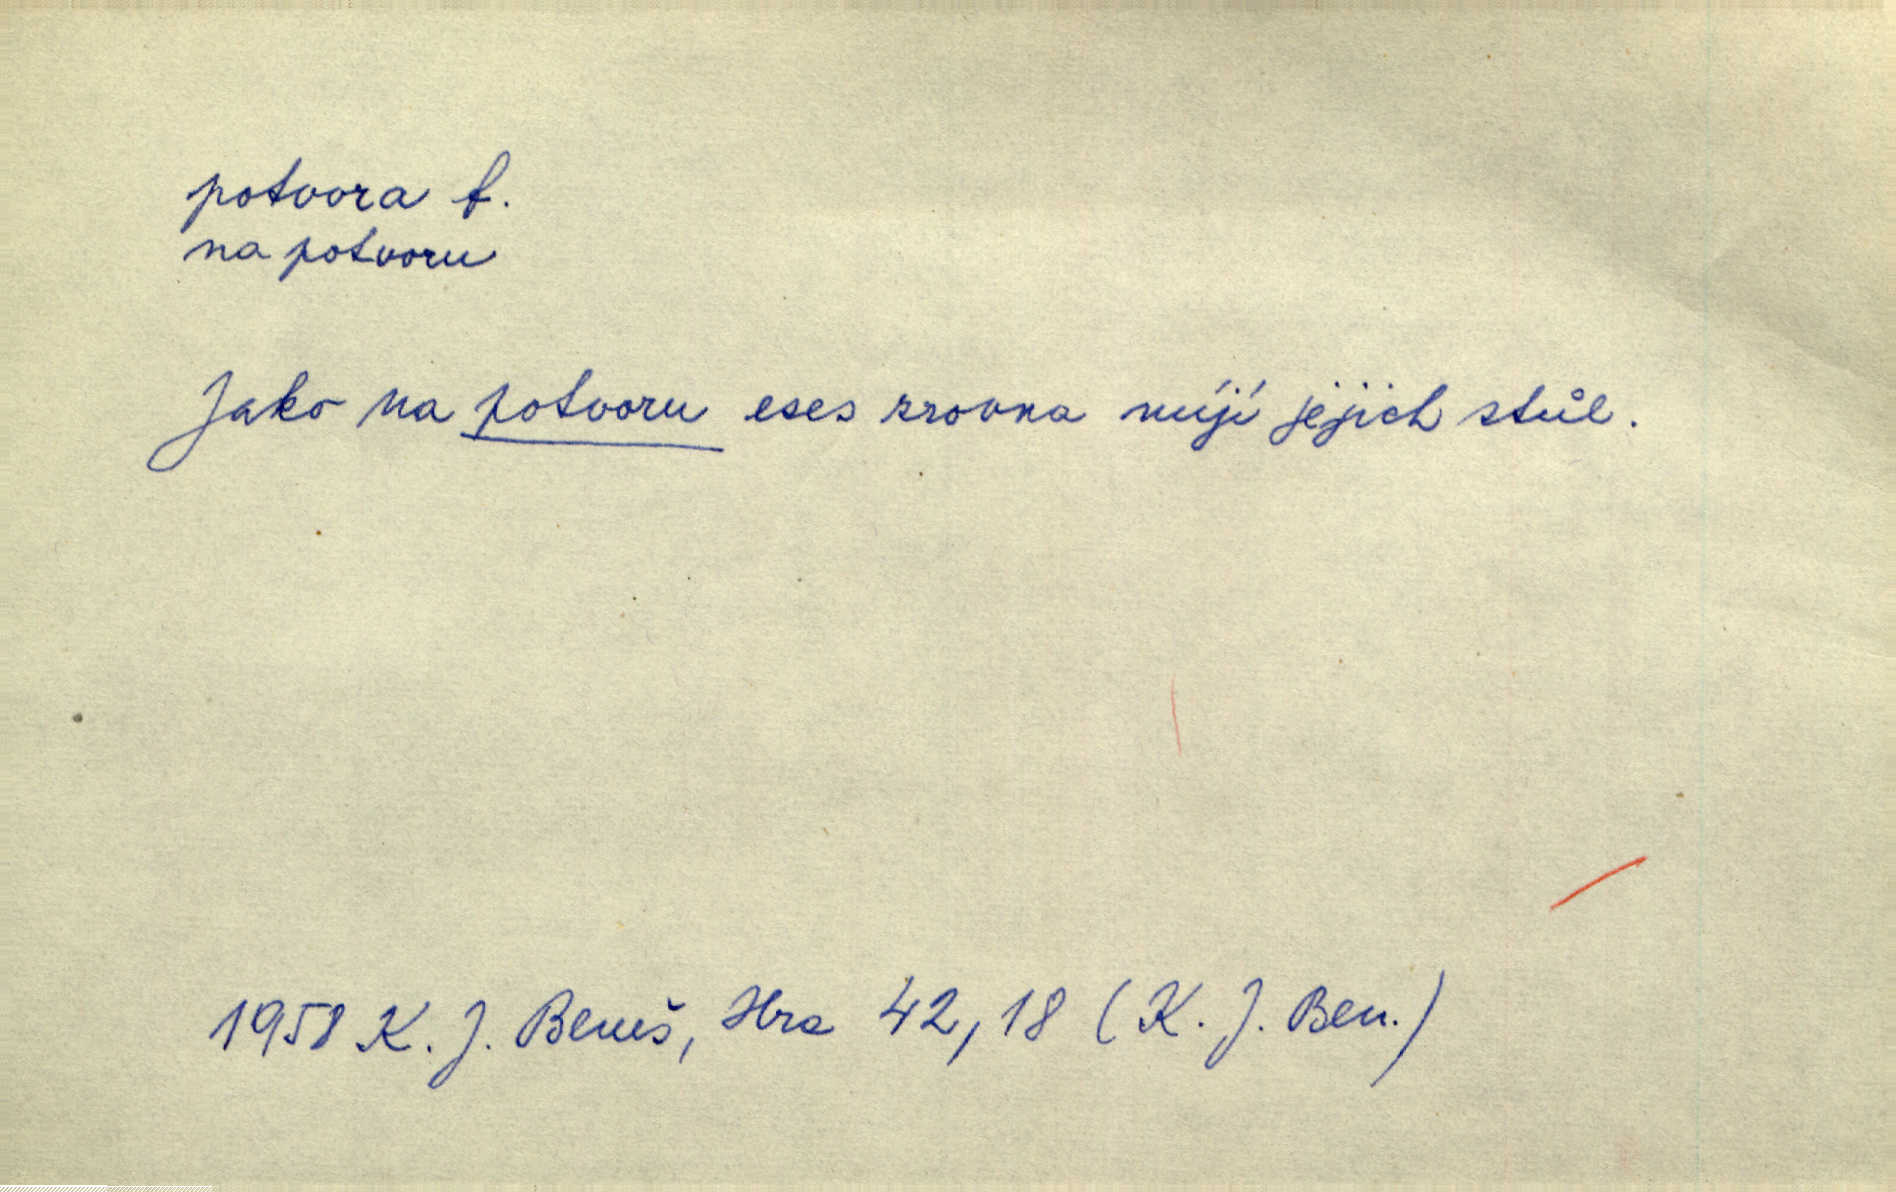 potvora f.
na potvoru
Jako na potvoru eses zrovna míjí jejich stůl.
1958 K. J. Beneš, Hra 42,18 (K. J. Ben.)